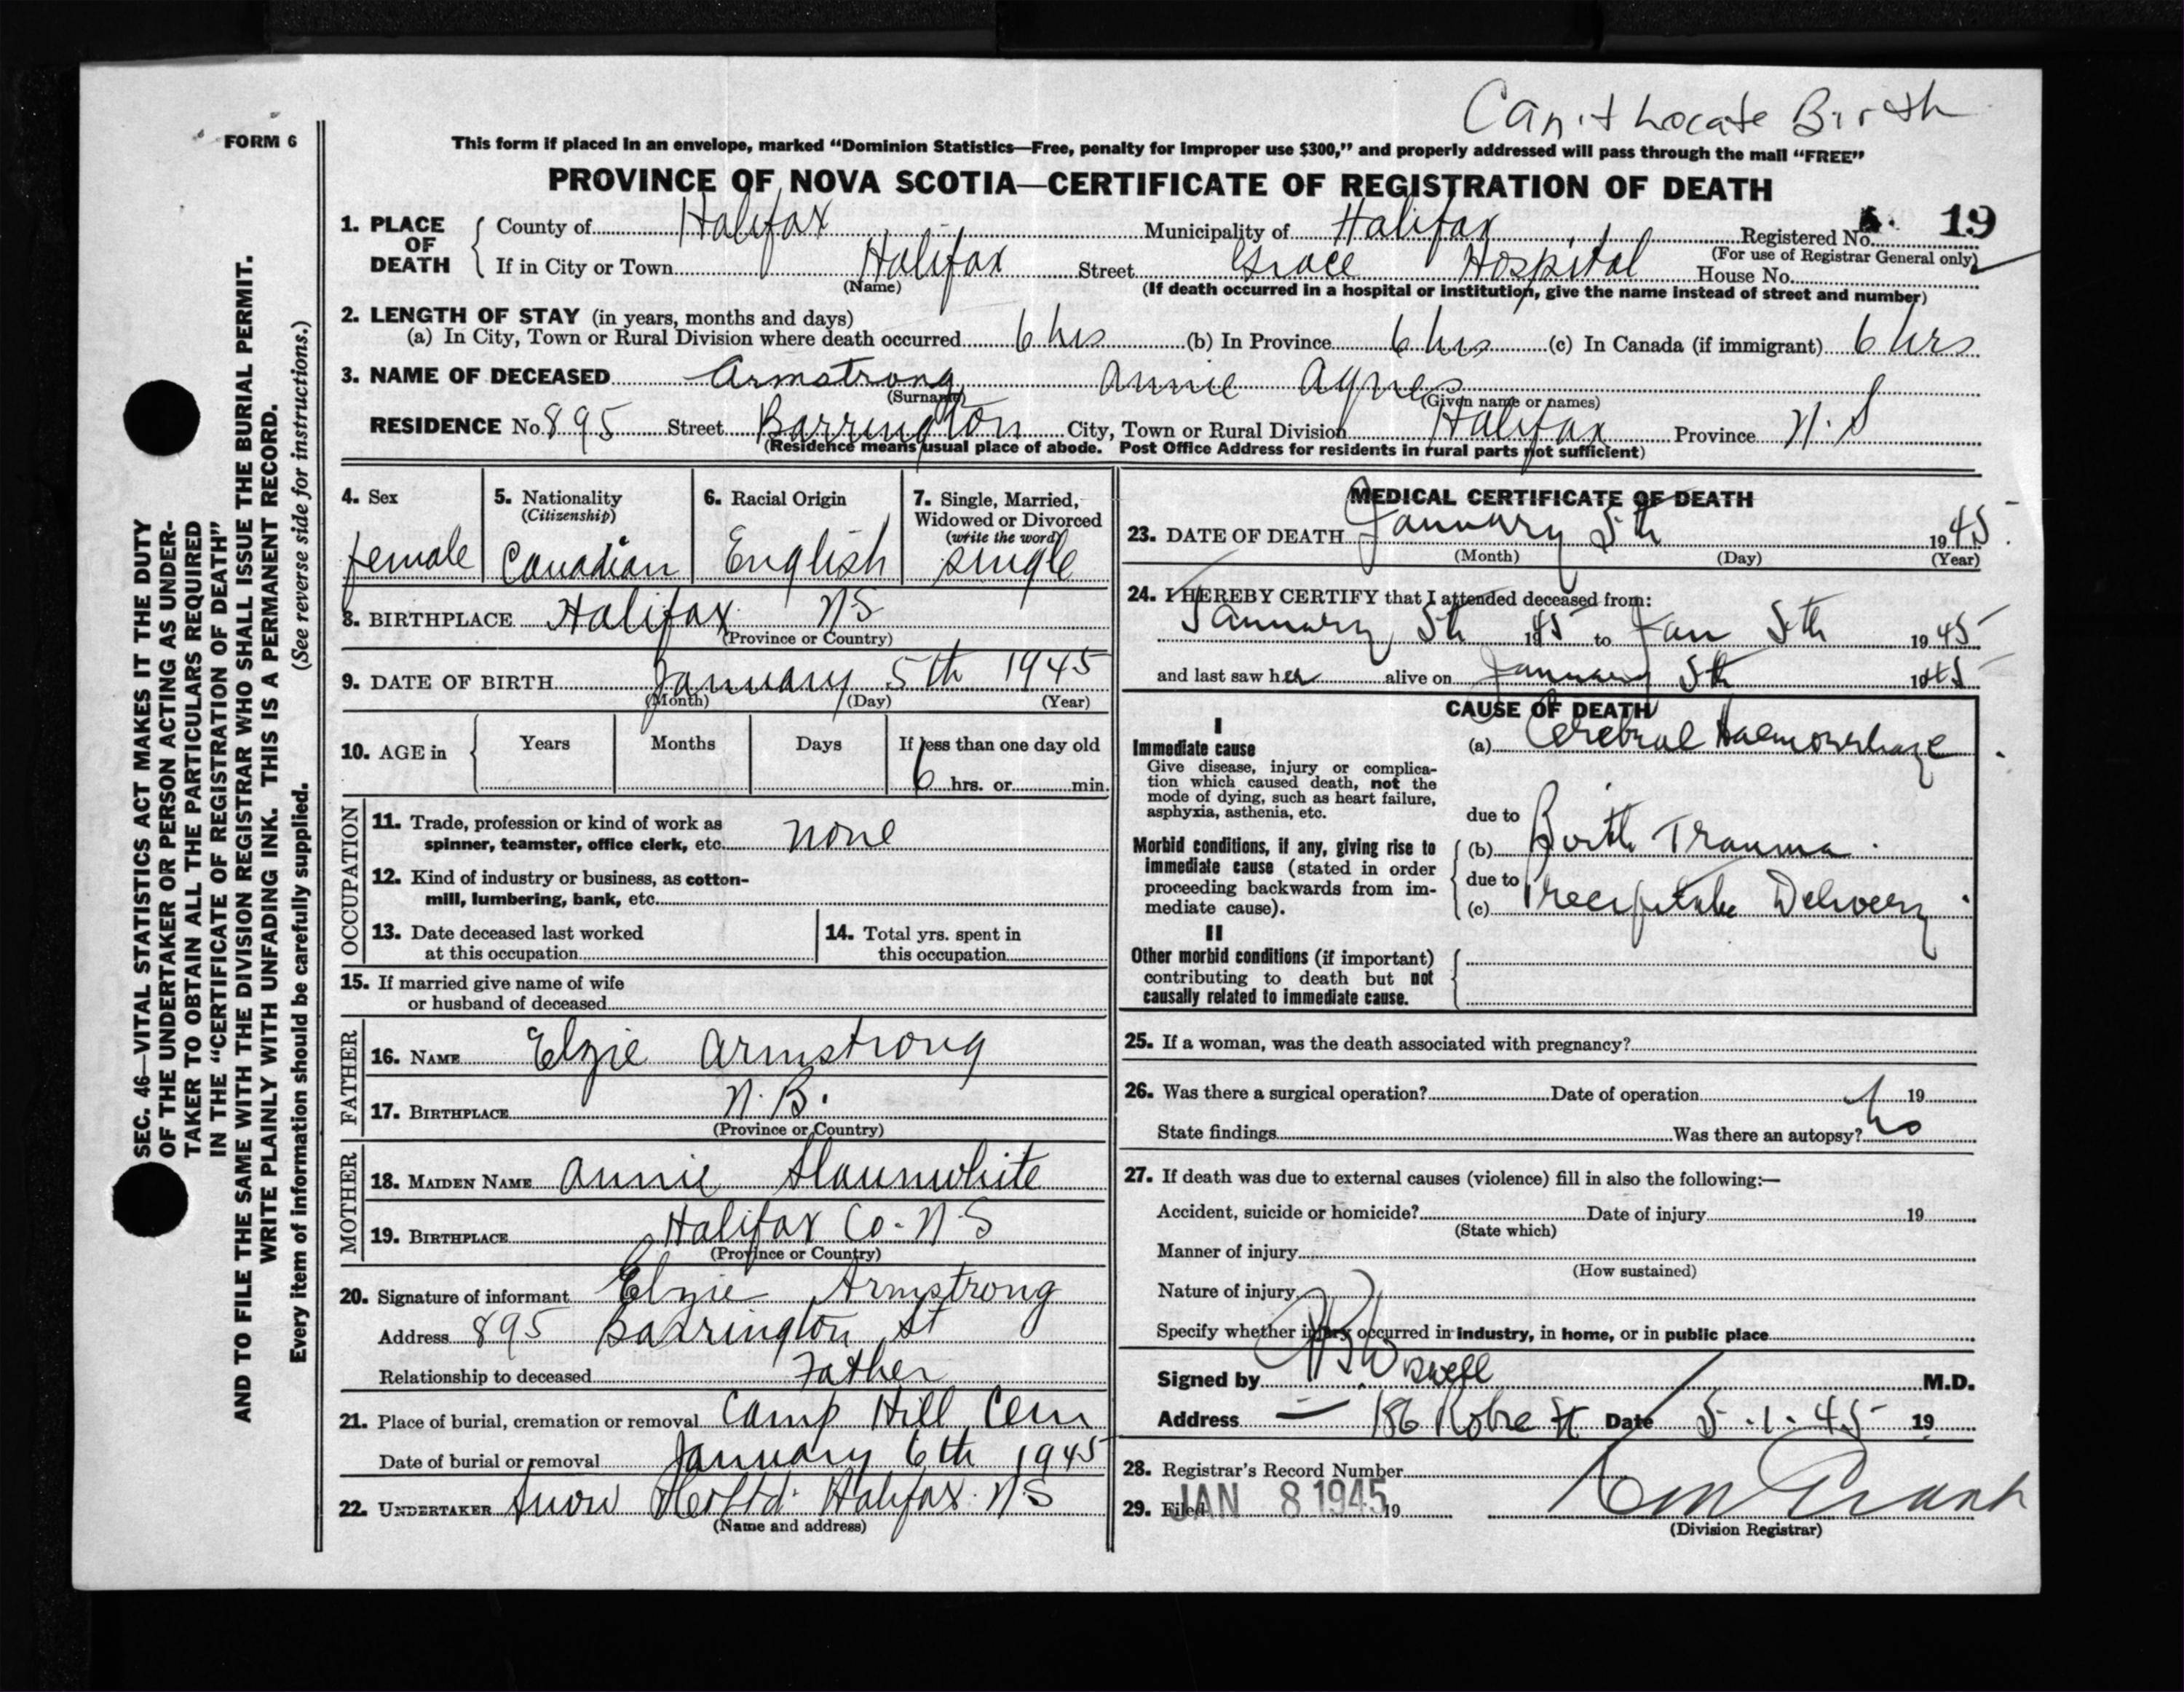 Can't Locate Birth
FORM 6
This form if placed in an envelope, marked “Dominion Statistics—Free, penalty for improper use $300,” and properly addressed will pass through the mail “FREE”
PROVINCE OF NOVA SCOTIA—CERTIFICATE OF REGISTRATION OF DEATH
1. PLACE OF DEATH County of Halifax Municipality of Halifax Registered No. 19
(For use of Registrar General only)
If in City or Town Halifax Street Grace Hospital House No.
(Name) (If death occurred in a hospital or institution, give the name instead of street and number)
2. LENGTH OF STAY (in years, months and days)
(a) In City, Town or Rural Division where death occurred 6 hrs (b) In Province 6 hrs (c) In Canada (if immigrant) 6 hrs
3. NAME OF DECEASED Armstrong, Annie Agnes
(Surname) (Given name or names)
RESIDENCE No. 895 Street Barrington City, Town or Rural Division Halifax Province N.S
(Residence means usual place of abode. Post Office Address for residents in rural parts not sufficient)
4. Sex female
5. Nationality (Citizenship) Canadian
6. Racial Origin English
7. Single, Married, Widowed or Divorced (write the word) single
8. BIRTHPLACE Halifax NS
(Province or Country)
9. DATE OF BIRTH January 5th 1945
(Month) (Day) (Year)
10. AGE in Years Months Days If less than one day old
6 hrs. or min.
OCCUPATION
11. Trade, profession or kind of work as
spinner, teamster, office clerk, etc. none
12. Kind of industry or business, as cotton-
mill, lumbering, bank, etc.
13. Date deceased last worked
at this occupation
14. Total yrs. spent in
this occupation
15. If married give name of wife
or husband of deceased
FATHER
16. NAME Elzie Armstrong
17. BIRTHPLACE N.B.
(Province or Country)
MOTHER
18. MAIDEN NAME Annie Slaunwhite
19. BIRTHPLACE Halifax Co. N.S
(Province or Country)
20. Signature of informant Elzie Armstrong
Address 895 Barrington St
Relationship to deceased Father
21. Place of burial, cremation or removal Camp Hill Cem
Date of burial or removal January 6th 1945
22. UNDERTAKER Snow Ltd. Halifax N.S
(Name and address)
MEDICAL CERTIFICATE OF DEATH
23. DATE OF DEATH January 5th 1945
(Month) (Day) (Year)
24. I HEREBY CERTIFY that I attended deceased from:
January 5th 1945 to Jan 5th 1945
and last saw her alive on January 5th 1945
CAUSE OF DEATH
I
Immediate cause
Give disease, injury or complica-
tion which caused death, not the
mode of dying, such as heart failure,
asphyxia, asthenia, etc.
(a) Cerebral Haemorrhage
due to
Morbid conditions, if any, giving rise to
immediate cause (stated in order
proceeding backwards from im-
mediate cause).
(b) Birth Trauma.
due to
(c) Precipitate Delivery
II
Other morbid conditions (if important)
contributing to death but not
causally related to immediate cause.
25. If a woman, was the death associated with pregnancy?
26. Was there a surgical operation? Date of operation 19
State findings Was there an autopsy? No
27. If death was due to external causes (violence) fill in also the following:—
Accident, suicide or homicide? Date of injury 19
(State which)
Manner of injury
(How sustained)
Nature of injury
Specify whether injury occurred in industry, in home, or in public place
Signed by M.D.
Address 186 Robie St Date 5.1.45 19
28. Registrar's Record Number
29. Filed JAN 8 1945 19
(Division Registrar)
SEC. 46—VITAL STATISTICS ACT MAKES IT THE DUTY
OF THE UNDERTAKER OR PERSON ACTING AS UNDER-
TAKER TO OBTAIN ALL THE PARTICULARS REQUIRED
IN THE “CERTIFICATE OF REGISTRATION OF DEATH”
AND TO FILE THE SAME WITH THE DIVISION REGISTRAR WHO SHALL ISSUE THE BURIAL PERMIT.
WRITE PLAINLY WITH UNFADING INK. THIS IS A PERMANENT RECORD.
Every item of information should be carefully supplied. (See reverse side for instructions.)